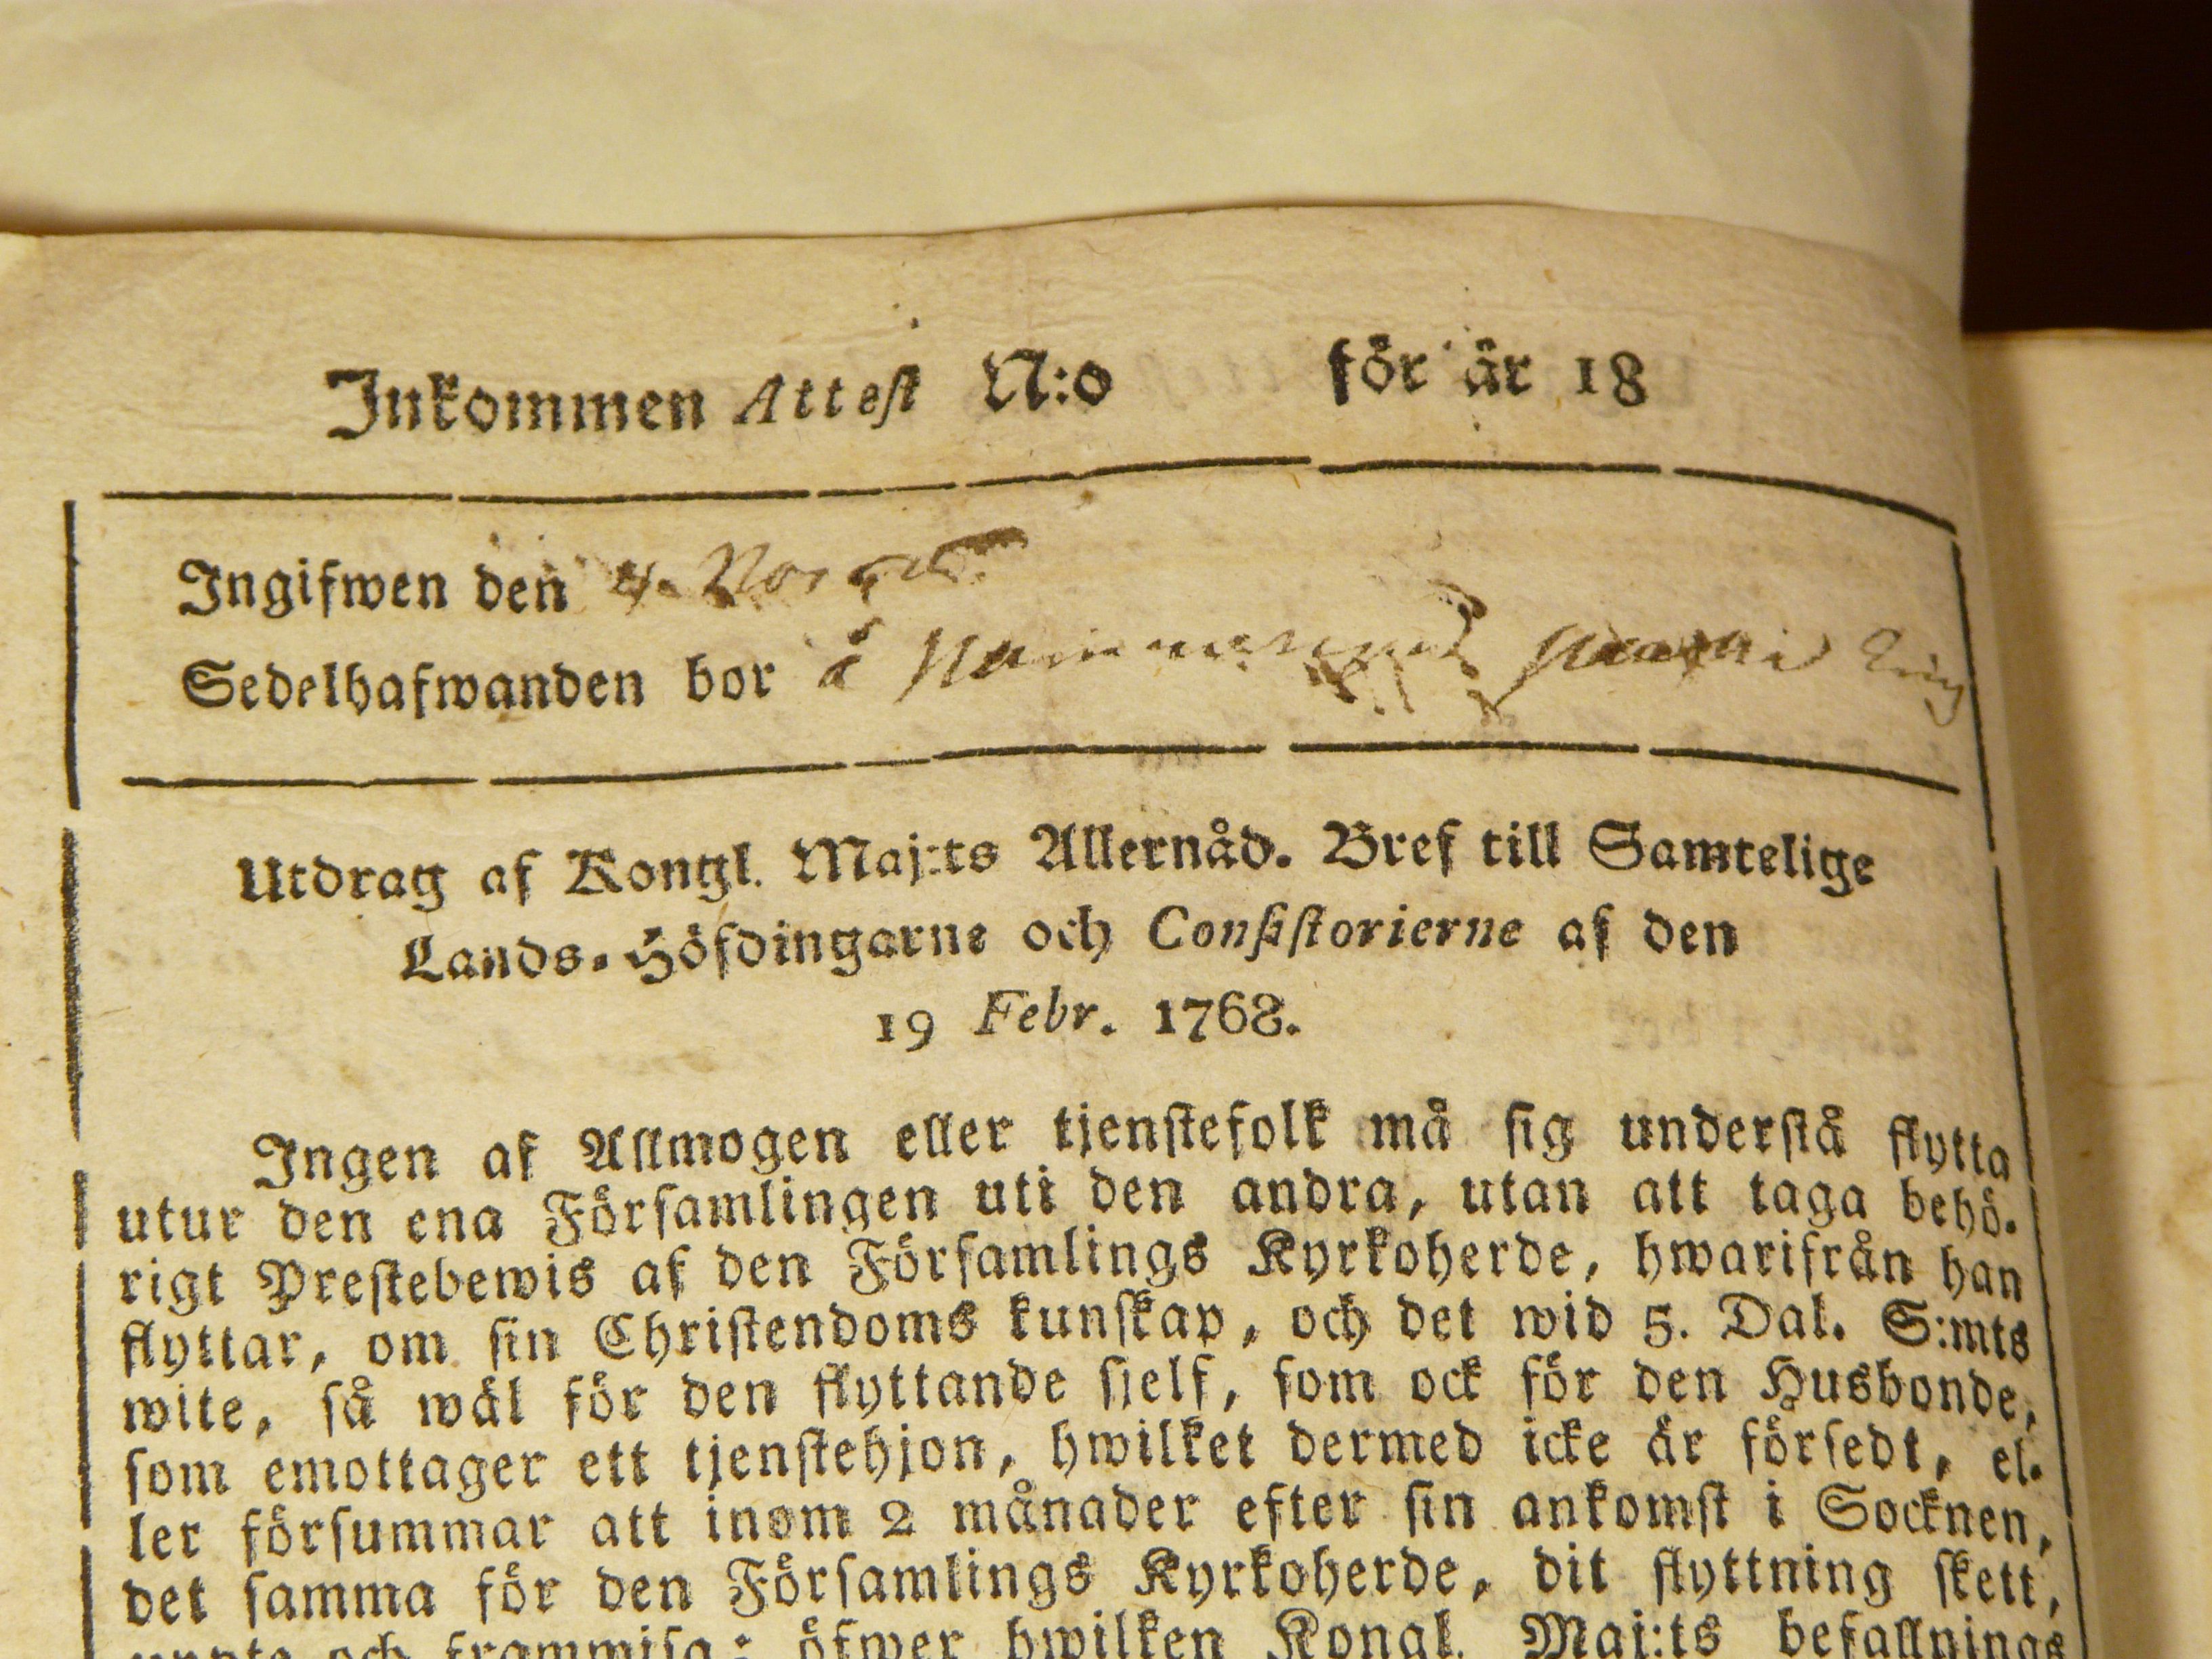 Inkommen Attest N:o för år 18
Ingifwen den 4.
Sedelhafwanden bor å
Utdrag af Kongl. Maj:ts Allernåd. Bref till Samtelige
Lands-Höfdingarne och Consistorierne af den
19 Febr. 1768.
Ingen af Allmogen eller tjenstefolk må sig understå flytta
utur den ena Församlingen uti den andra, utan att taga behö-
rigt Prestebewis af den Församlings Kyrkoherde, hwarifrån han
flyttar, om sin Christendoms kunskap, och det wid 5. Dal. S:mts
wite, så wäl för den flyttande sjelf, som ock för den Husbonde,
som emottager ett tjenstehjon, hwilket dermed icke är försedt, el-
ler försummar att inom 2 månader efter sin ankomst i Socknen,
det samma för den Församlings Kyrkoherde, dit flyttning skett,
uppte och frammisa; öfwer hwilken Kongl. Maj:ts befallnings